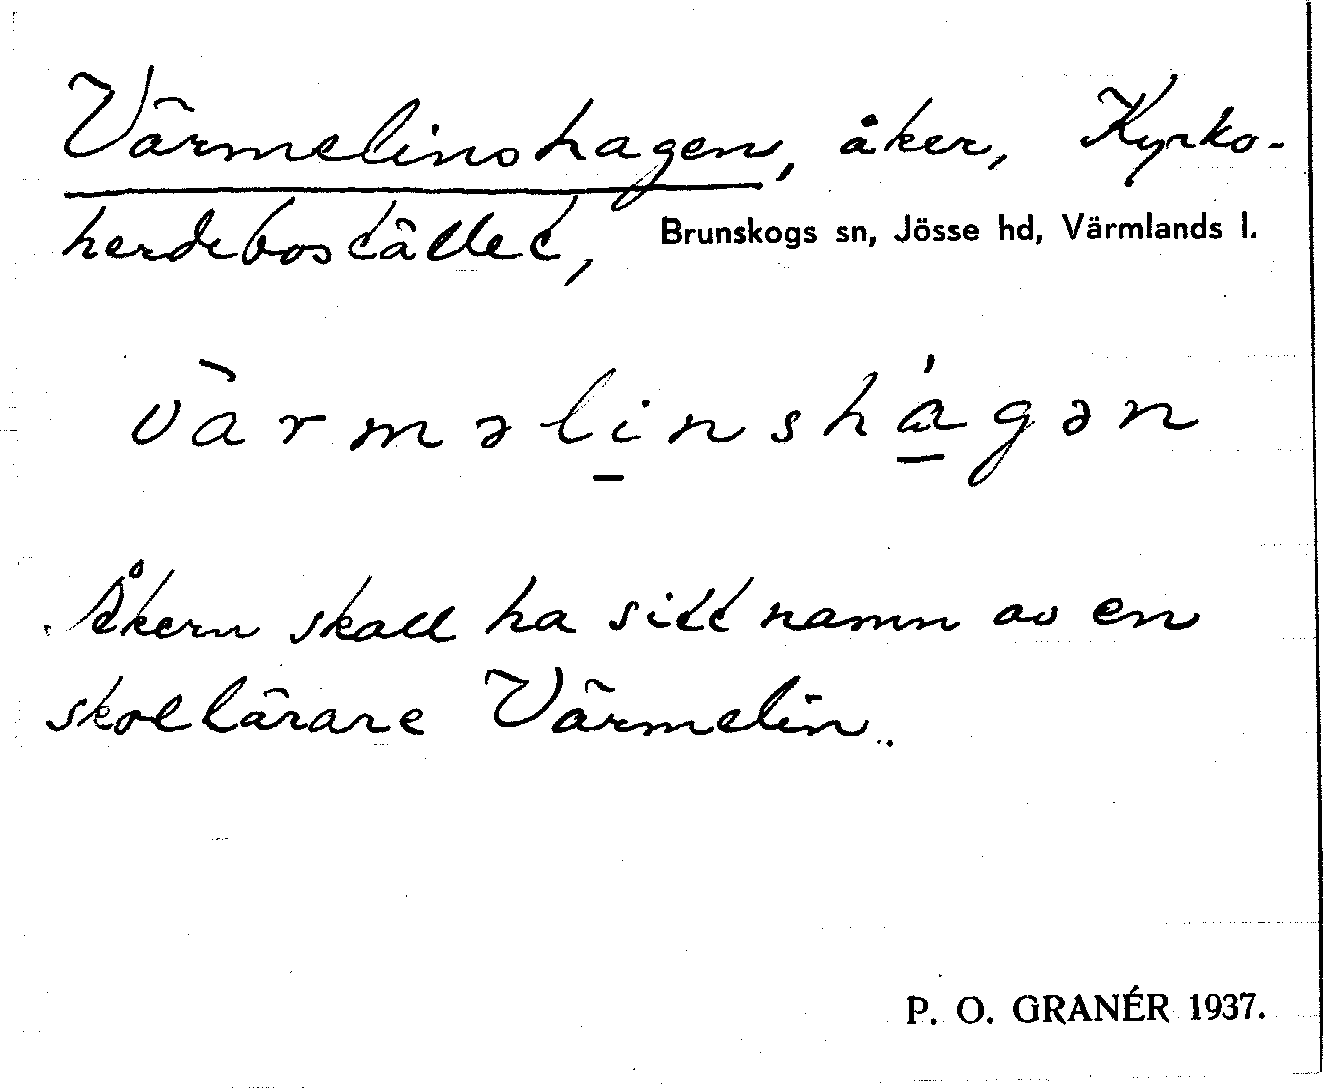 Värmelinshagen, åker, Kyrko-
herdebostället, Brunskogs sn, Jösse hd, Värmlands l.
vàrməlinshágən
Åkern skall ha sitt namn av en
skollärare Värmelin.
P. O. GRANÉR 1937.